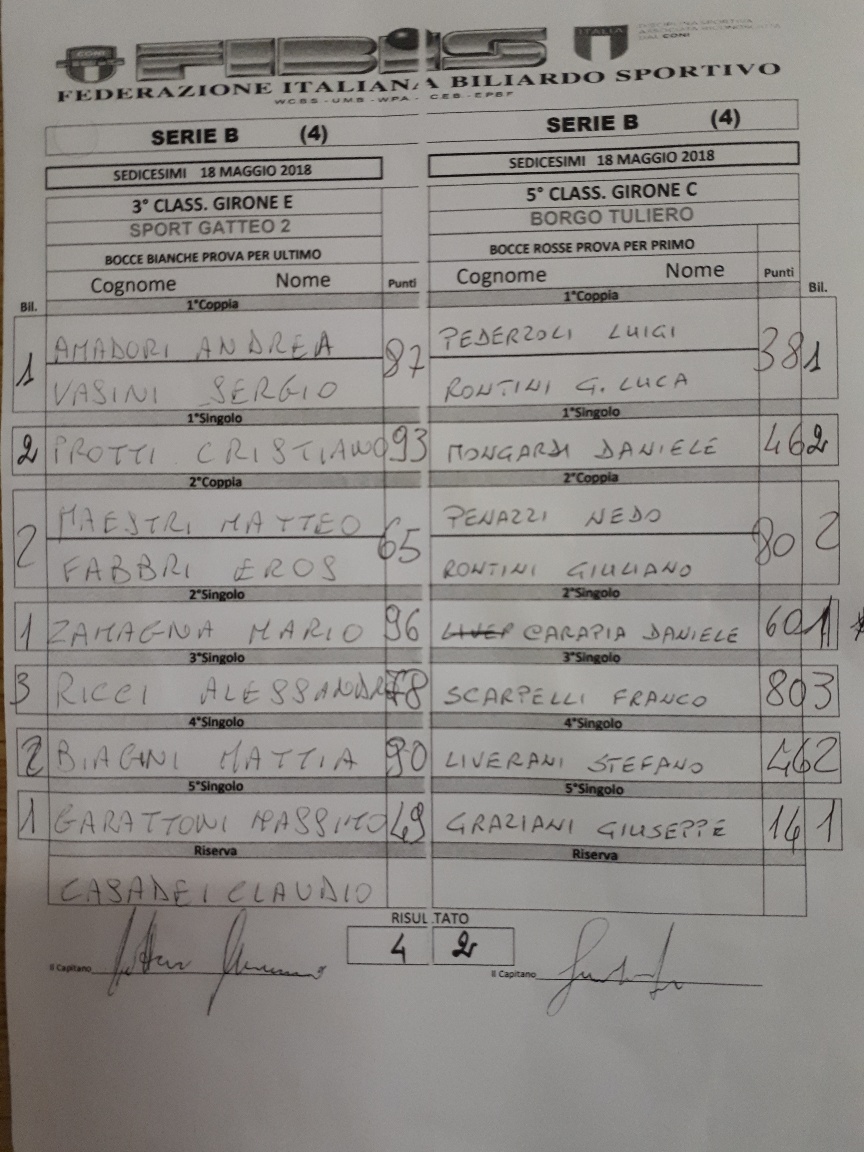 FIBiS
CONI
ITALIA
FEDERAZIONE ITALIANA BILIARDO SPORTIVO
WCBS - UMB - WPA - CEB - EPBF
SERIE B (4)
SEDICESIMI 18 MAGGIO 2018
3° CLASS. GIRONE E
SPORT GATTEO 2
BOCCE BIANCHE PROVA PER ULTIMO
Bil. Cognome Nome Punti
1°Coppia
1 AMADORI ANDREA 87
VASINI SERGIO
1°Singolo
2 PROTTI CRISTIANO 93
2°Coppia
2 MAESTRI MATTEO 65
FABBRI EROS
2°Singolo
1 ZAMAGNA MARIO 96
3°Singolo
3 RICCI ALESSANDRO 78
4°Singolo
2 BIAGINI MATTIA 90
5°Singolo
1 GARATTONI MASSIMO 49
Riserva
CASADEI CLAUDIO
SERIE B (4)
SEDICESIMI 18 MAGGIO 2018
5° CLASS. GIRONE C
BORGO TULIERO
BOCCE ROSSE PROVA PER PRIMO
Cognome Nome Punti Bil.
1°Coppia
PEDERZOLI LUIGI 38 1
RONTINI G. LUCA
1°Singolo
MONGARDI DANIELE 46 2
2°Coppia
PENAZZI NEDO 80 2
RONTINI GIULIANO
2°Singolo
CARAPIA DANIELE 60 1
3°Singolo
SCARPELLI FRANCO 80 3
4°Singolo
LIVERANI STEFANO 46 2
5°Singolo
GRAZIANI GIUSEPPE 14 1
Riserva
RISULTATO
4 2
Il Capitano
Il Capitano